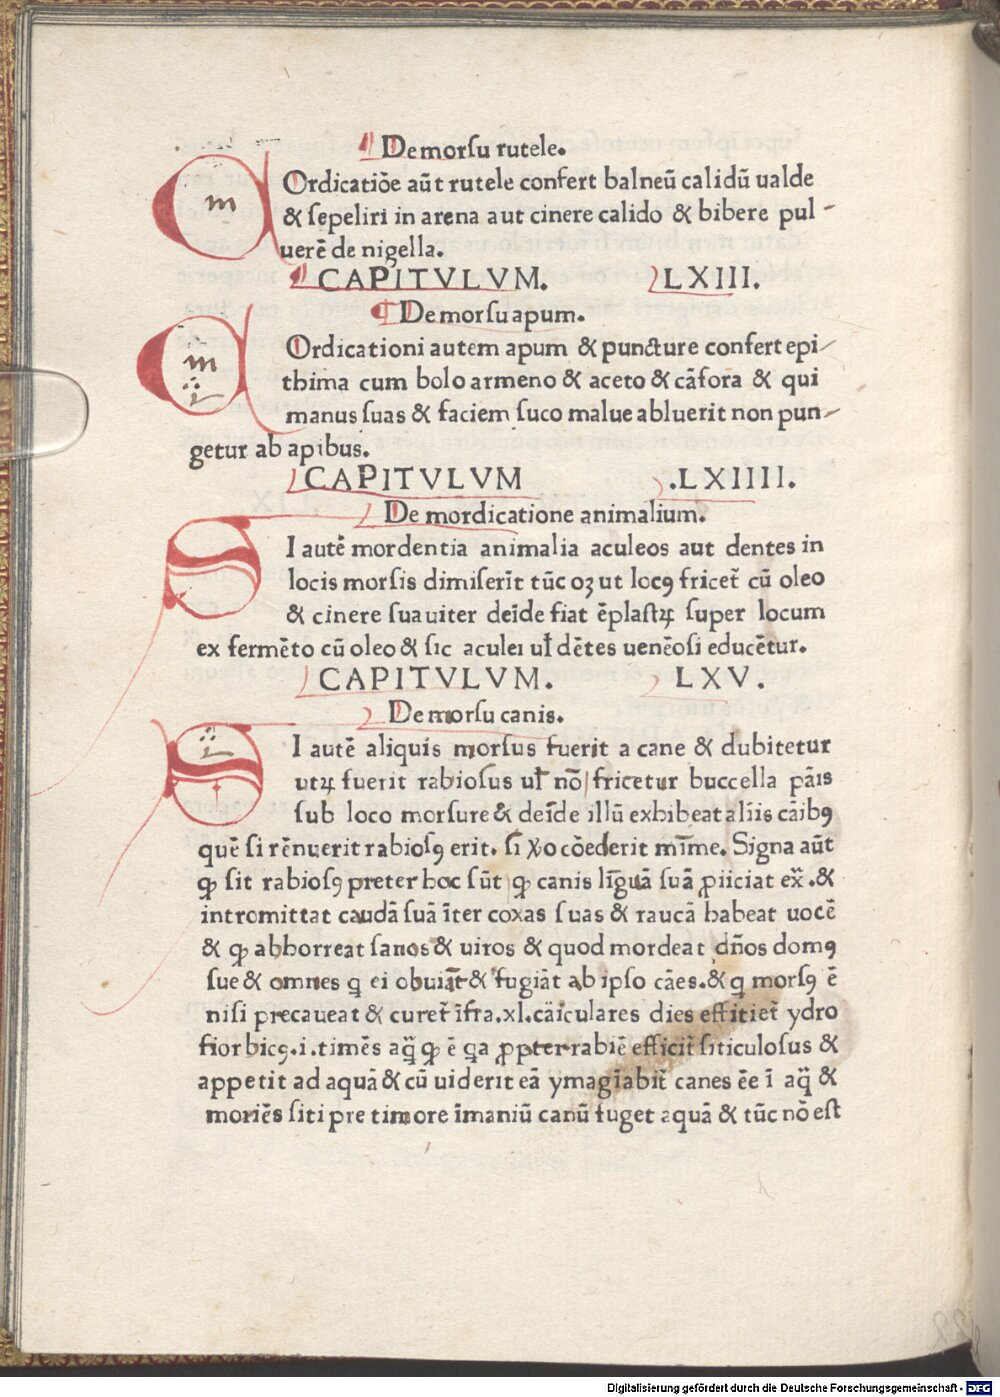 ¶ De morsu rutele.
m Ordicatiõe aũt rutele confert balneũ calidũ ualde
& sepeliri in arena aut cinere calido & bibere pul-
uerẽ de nigella.
¶ CAPITVLVM. LXIII.
¶ De morsu apum.
m Ordicationi autem apum & puncture confert epi-
thima cum bolo armeno & aceto & cãfora & qui
manus suas & faciem suco malue abluerit non pun-
getur ab apibus.
CAPITVLVM .LXIIII.
De mordicatione animalium.
S I autẽ mordentia animalia aculeos aut dentes in
locis morsis dimiserĩt tũc oꝫ ut locꝯ fricet̃ cũ oleo
& cinere suauiter deĩde fiat ẽplastꝝ super locum
ex fermẽto cũ oleo & sic aculei ul̃ dẽtes uenẽosi educẽtur.
CAPITVLVM. LXV.
De morsu canis.
S I autẽ aliquis morsus fuerit a cane & dubitetur
utꝝ fuerit rabiosus ul̃ nõ fricetur buccella pãis
sub loco morsure & deĩde illũ exhibeat aliis cãibꝯ
quẽ si rẽnuerit rabiosꝯ erit. si ꝟo cõederit mĩme. Signa aũt
ꝙ sit rabiosꝯ preter hoc sũt ꝙ canis lĩguã suã ꝓiiciat ex̃.&
intromittat caudã suã ĩter coxas suas & raucã habeat uocẽ
& ꝙ abhorreat sanos & uiros & quod mordeat dños domꝯ
sue & omnes q ei obuiãt & fugiãt ab ipso cães.& q morsꝯ ẽ
nisi precaueat & curet̃ ĩfra.xl.cãiculares dies efficiet̃ ydro
fiorbicꝯ.i.timẽs aq̃ ꝙ ẽ ꝗa ꝓpter rabiẽ efficit̃ siticulosus &
appetit ad aquã & cũ uiderit eã ymagĩabit̃ canes ẽe ĩ aq̃ &
moriẽs siti pre timore ĩmaniũ canũ fuget aquã & tũc nõ est
Digitalisierung gefördert durch die Deutsche Forschungsgemeinschaft - DFG